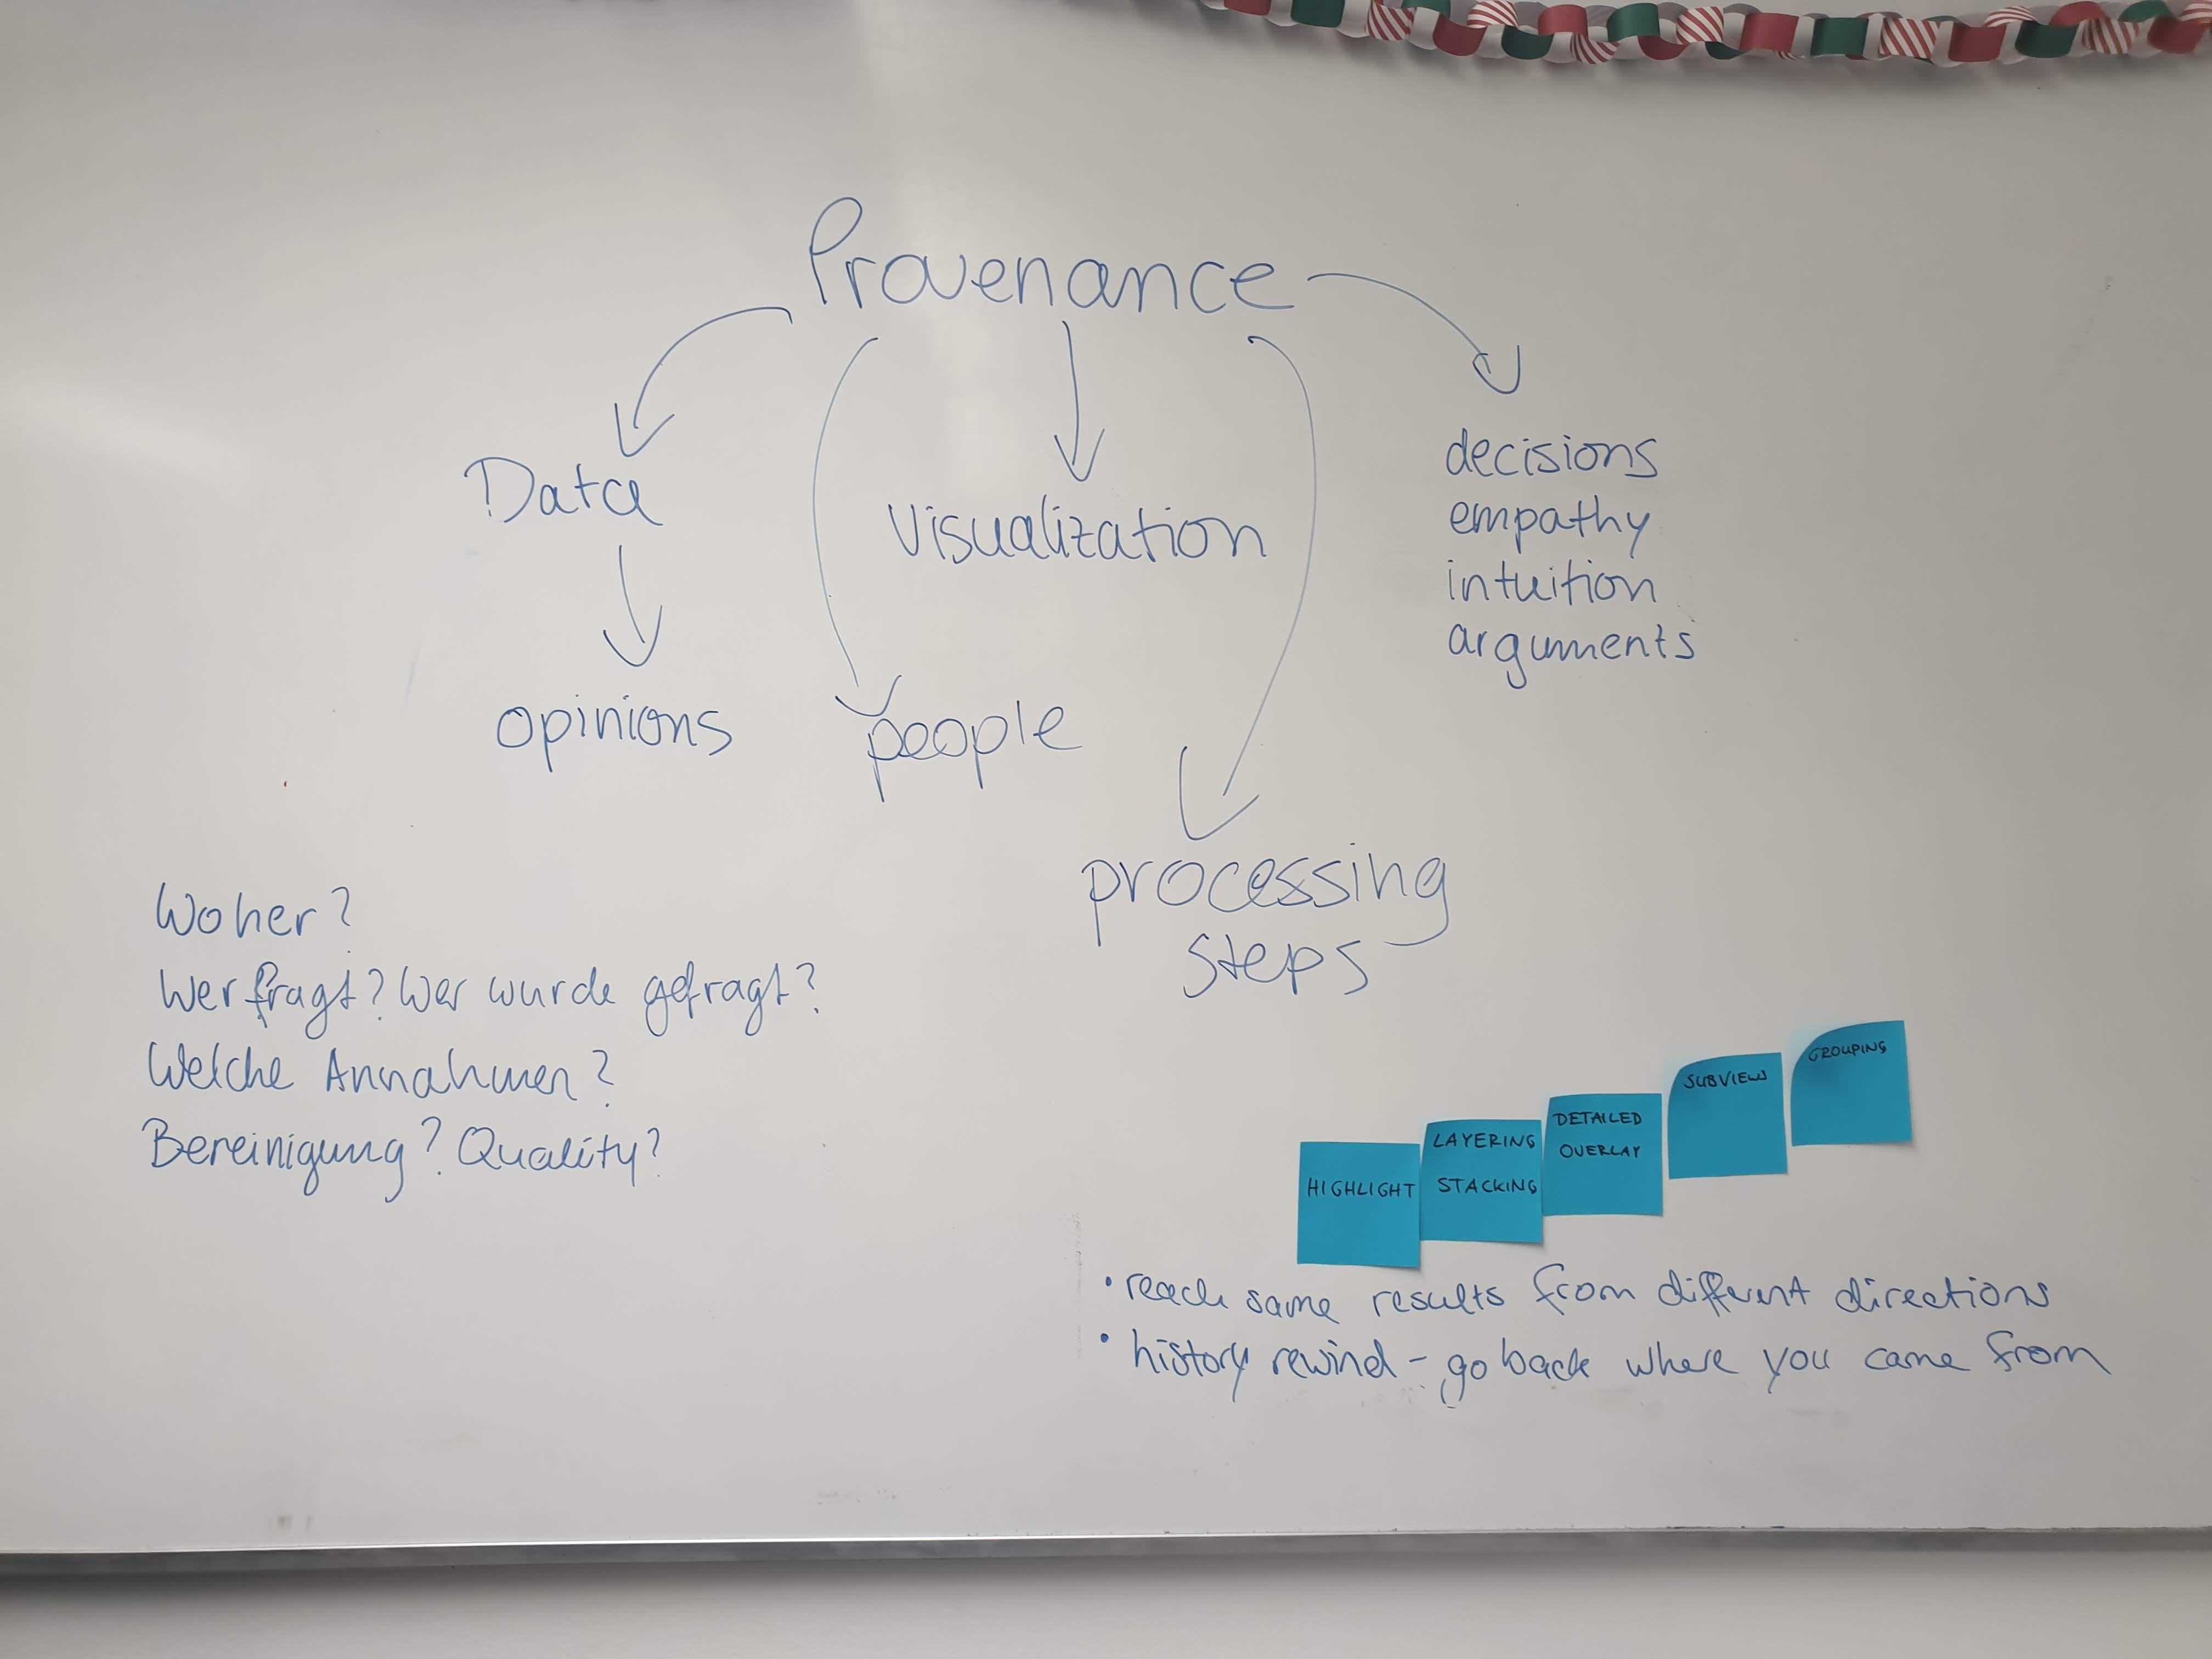 Provenance
Data
Visualization
decisions
empathy
intuition
arguments
opinions
people
processing
steps
Woher?
Wer fragt? Wer wurde gefragt?
Welche Annahmen?
Bereinigung? Quality?
HIGHLIGHT
LAYERING
STACKING
DETAILED
OVERLAY
SUBVIEW
GROUPING
• reach same results from different directions
• history rewind - go back where you came from